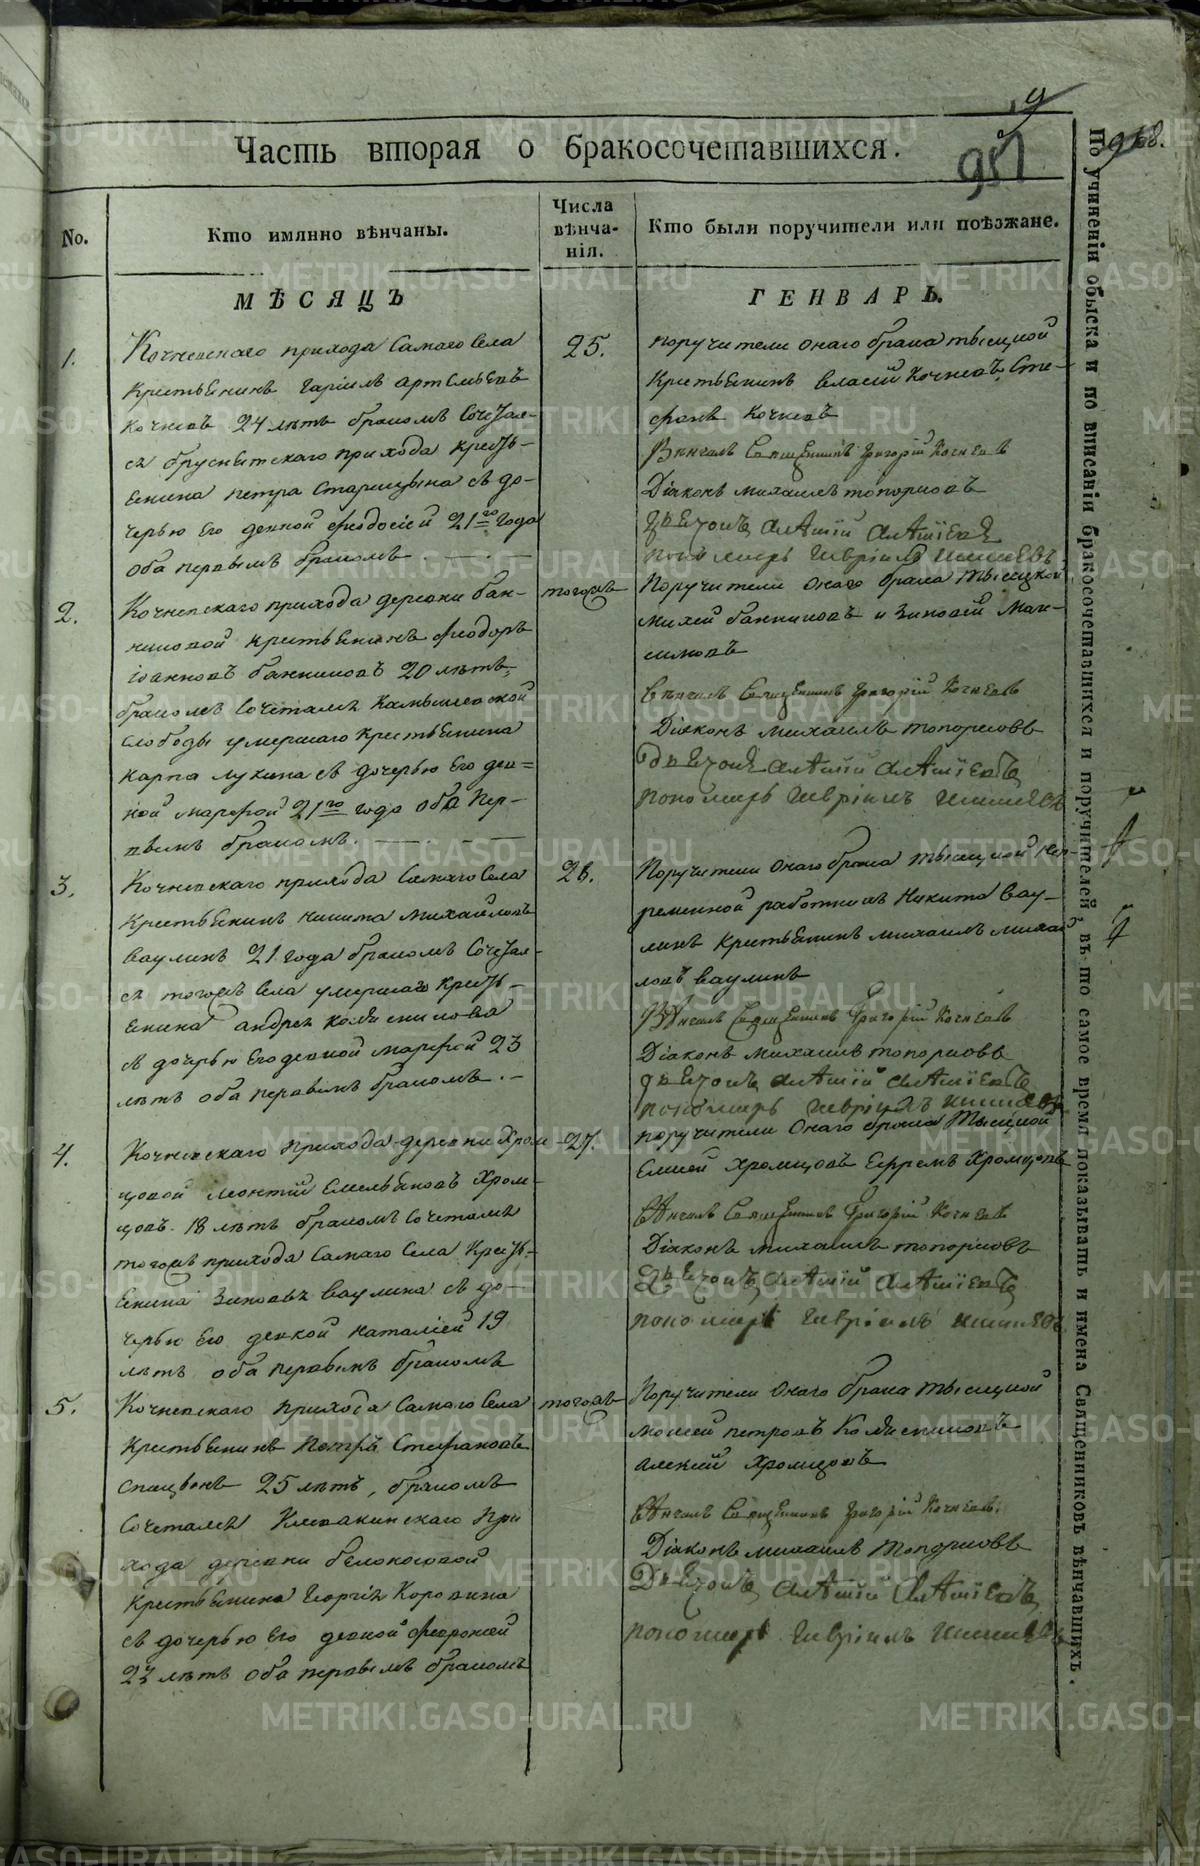 Часть вторая о бракосочетавшихся.
957
968.
No.
Кто имянно вѣнчаны.
Числа
вѣнча-
нія.
Кто были поручители или поѣзжане.
МѢСЯЦЪ
ГЕНВАРЬ.
1.
Кочневскаго прихода самаго села
крестьянинъ Артемьевъ
Кочневъ 24 лѣтъ бракомъ сочетал-
ся бруснятскаго прихода кресть-
янина Петра Старицына съ до-
черью его девкой Феодосіей 21го года
оба первымъ бракомъ
25.
поручители онаго брака тысяцкой
крестьянинъ Власій Кочневъ, Сте-
фанъ Кочневъ
Вѣнчалъ Священникъ Григорій Кочневъ
Діаконъ Михаилъ Топорковъ
пономарь Гавріилъ
2.
Кочневскаго прихода деревни Бан-
никовой крестьянинъ Феодоръ
Іоанновъ Банниковъ 20 лѣтъ,
бракомъ сочетался Камышевской
слободы умершаго крестьянина
Карпа Лукина съ дочерью его дев=
кой Марфой 21го года оба пер-
вымъ бракомъ.
тогожъ
Поручители онаго брака тысяцкой
Михей Банниковъ и Зиновій Мак-
симовъ
Вѣнчалъ Священникъ Григорій Кочневъ
Діаконъ Михаилъ Топорковъ
пономарь Гавріилъ
3.
Кочневскаго прихода самаго села
крестьянинъ Никита Михайловъ
Ваулинъ 21 года бракомъ сочетал-
ся тогожъ села умершаго кресть-
янина Андрея Колясникова
съ дочерью его девкой Марфой 23
лѣтъ оба первымъ бракомъ.
26.
Поручители онаго брака тысяцкой
работникъ Никита Вау-
линъ крестьянинъ Михаилъ Михай
ловъ Ваулинъ
Вѣнчалъ Священникъ Григорій Кочневъ
Діаконъ Михаилъ Топорковъ
пономарь Гавріилъ
4.
Кочневскаго прихода деревни Хром
цовой Леонтій Емельяновъ Хром-
цовъ 18 лѣтъ бракомъ сочетался
тогожъ прихода самаго села кресть-
янина Зиновья Ваулина съ до-
черью его девкой Наталіей 19
лѣтъ оба первымъ бракомъ
27.
поручители онаго брака тысяцкой
Хромцовъ Ефремъ Хромцовъ
Вѣнчалъ Священникъ Григорій Кочневъ
Діаконъ Михаилъ Топорковъ
пономарь Гавріилъ
5.
Кочневскаго прихода самаго села
крестьянинъ Петръ Стефановъ
25 лѣтъ, бракомъ
сочетался Клевакинскаго при
хода деревни Белоносовой
крестьянина Георгія Коровина
съ дочерью его девкой Февроніей
23 лѣтъ оба первымъ бракомъ
тогожъ
Поручители онаго брака тысяцкой
Моисей Петровъ Колясниковъ
Алексій Хромцовъ
Вѣнчалъ Священникъ Григорій Кочневъ.
Діаконъ Михаилъ Топорковъ
пономарь Гавріилъ
По учиненіи обыска и по вписаніи бракосочетавшихся и поручителей, въ то самое время показывать и имена Священниковъ вѣнчавшихъ.
METRIKI.GASO-URAL.RU